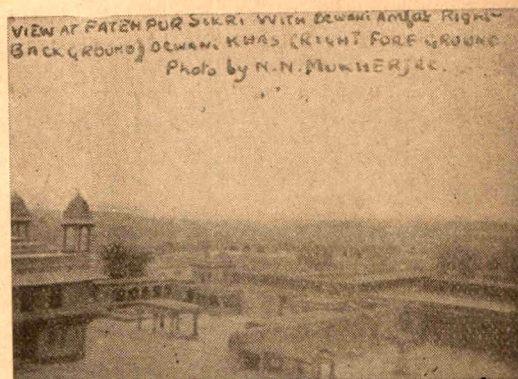 VIEW AT FATEHPUR SIKRI WITH DEWANI AM (AT RIGHT
BACKGROUND) DEWANI KHAS (RIGHT FORE GROUND.
Photo by N.N. MUKHERJEE.